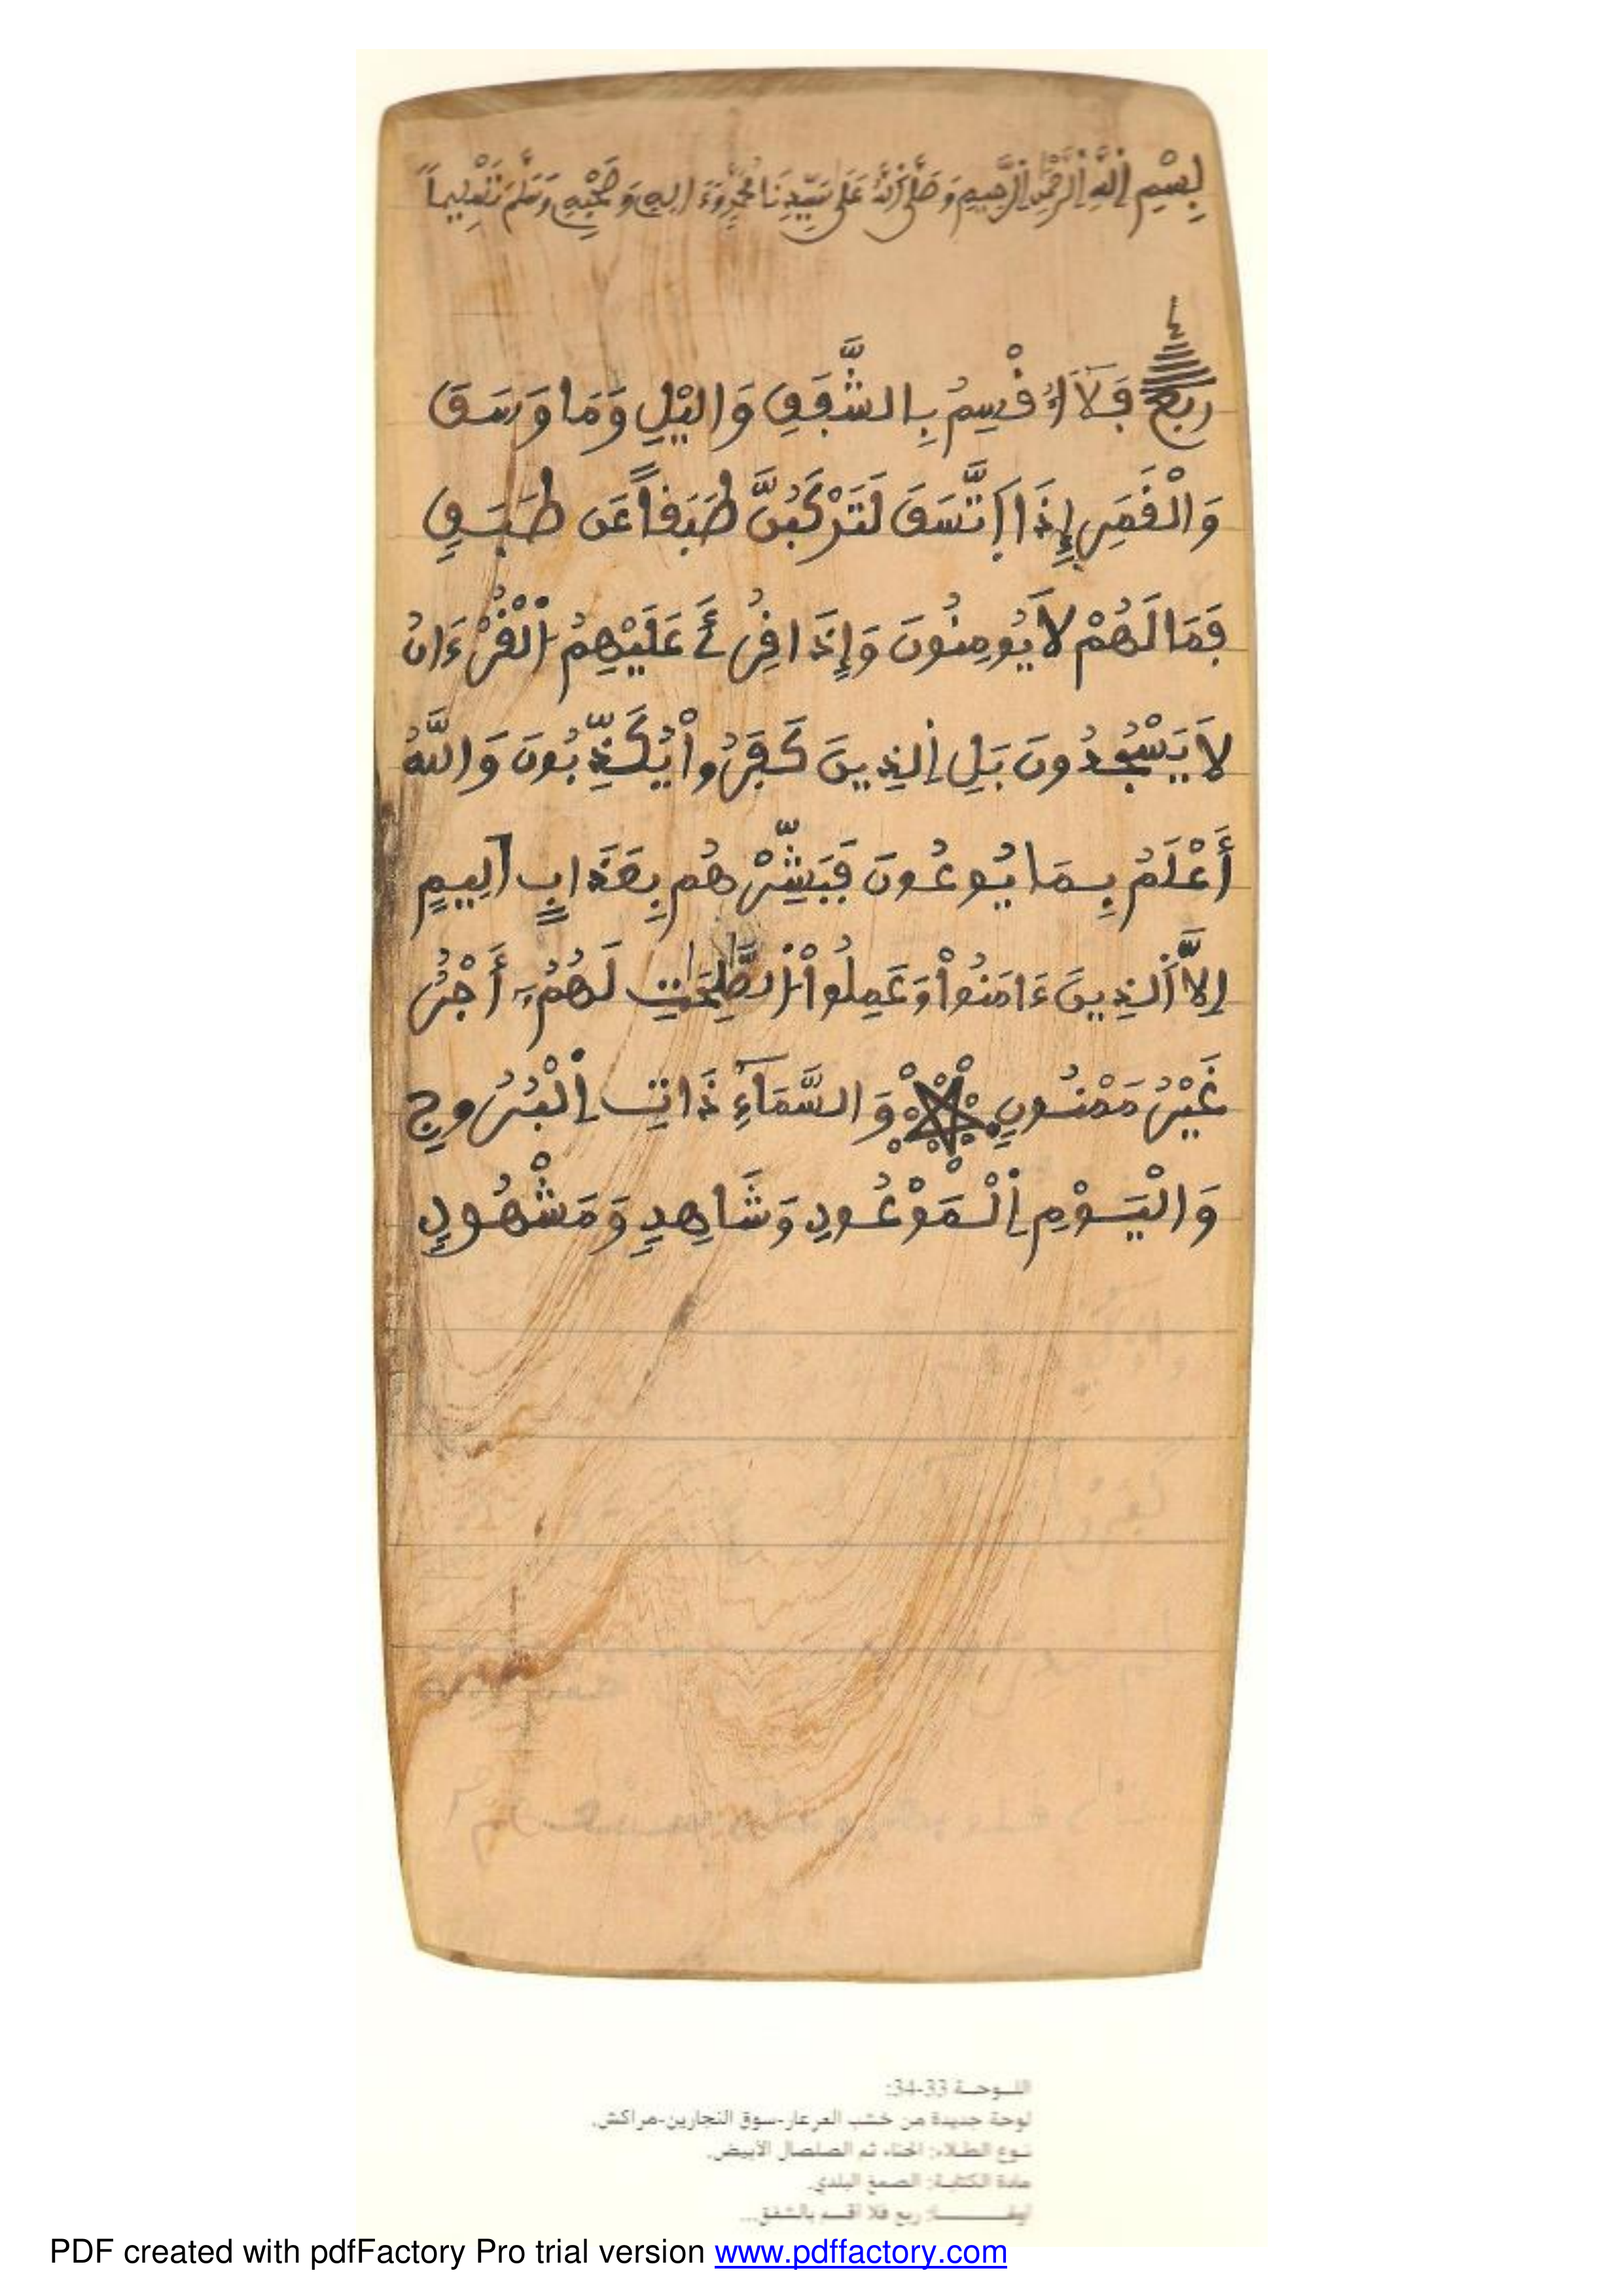 بِسْمِ اِللَّهِ اِلرَّحْمَٰنِ اِلرَّحِيمِ وَصَلَّى اَللَّهُ عَلَى سَيِّدِنَا مُحَمَّدٍ وَءَالِهِ وَصَحْبِهِ وَسَلَّمَ تَسْلِيماً
ربع فَلَا أُقْسِمُ بِالشَّفَقِ وَاليْلِ وَمَا وَسَقَ
وَالْقَمَرِ إِذَا اَتَّسَقَ لَتَرْكَبُنَّ طَبَقاً عَن طَبَقٍ
فَمَا لَهُمْ لَا يُومِنُونَ وَإِذَا قُرِئَ عَلَيْهِمُ اُلْقُرْءَانُ
لَا يَسْجُدُونَ بَلِ اِلذِينَ كَفَرُواْ يُكَذِّبُونَ وَاللَّهُ
أَعْلَمُ بِمَا يُوعُونَ فَبَشِّرْهُم بِعَذَابٍ اَلِيمٍ
اِلَّا اَلذِينَ ءَامَنُواْ وَعَمِلُواْ اُلصَّٰلِحَٰتِ لَهُمُۥ أَجْرٌ
غَيْرُ مَمْنُونٍ وَالسَّمَآءِ ذَاتِ اِلْبُرُوجِ
وَالْيَوْمِ اِلْمَوْعُودِ وَشَاهِدٍ وَمَشْهُودٍ
اللـوحـة 33-34:
لوحة جديدة من خشب العرعار-سوق النجارين-مراكش.
نـوع الطـلاء: الحناء ثم الصلصال الأبيض.
مادة الكتابـة: الصمغ البلدي.
ربع فلا أقسم بالشفق...
PDF created with pdfFactory Pro trial version www.pdffactory.com